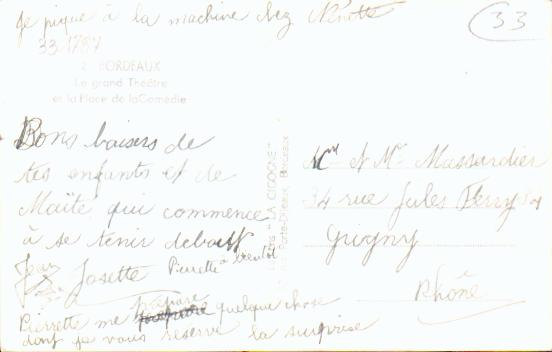 Je pique à la machine chez Nénette
33
33 1787
2. BORDEAUX
Le grand Théâtre
et la Place de la Comédie
Bons baisers de
tes enfants et de
Maïté qui commence
à se tenir debout
Jean Josette Pierrette à bientôt
Pierrette me prépare quelque chose
dont je vous réserve la surprise
"LA CIGOGNE"
Mme et Mr Massardier
34 rue Jules Ferry
Grigny
Rhône